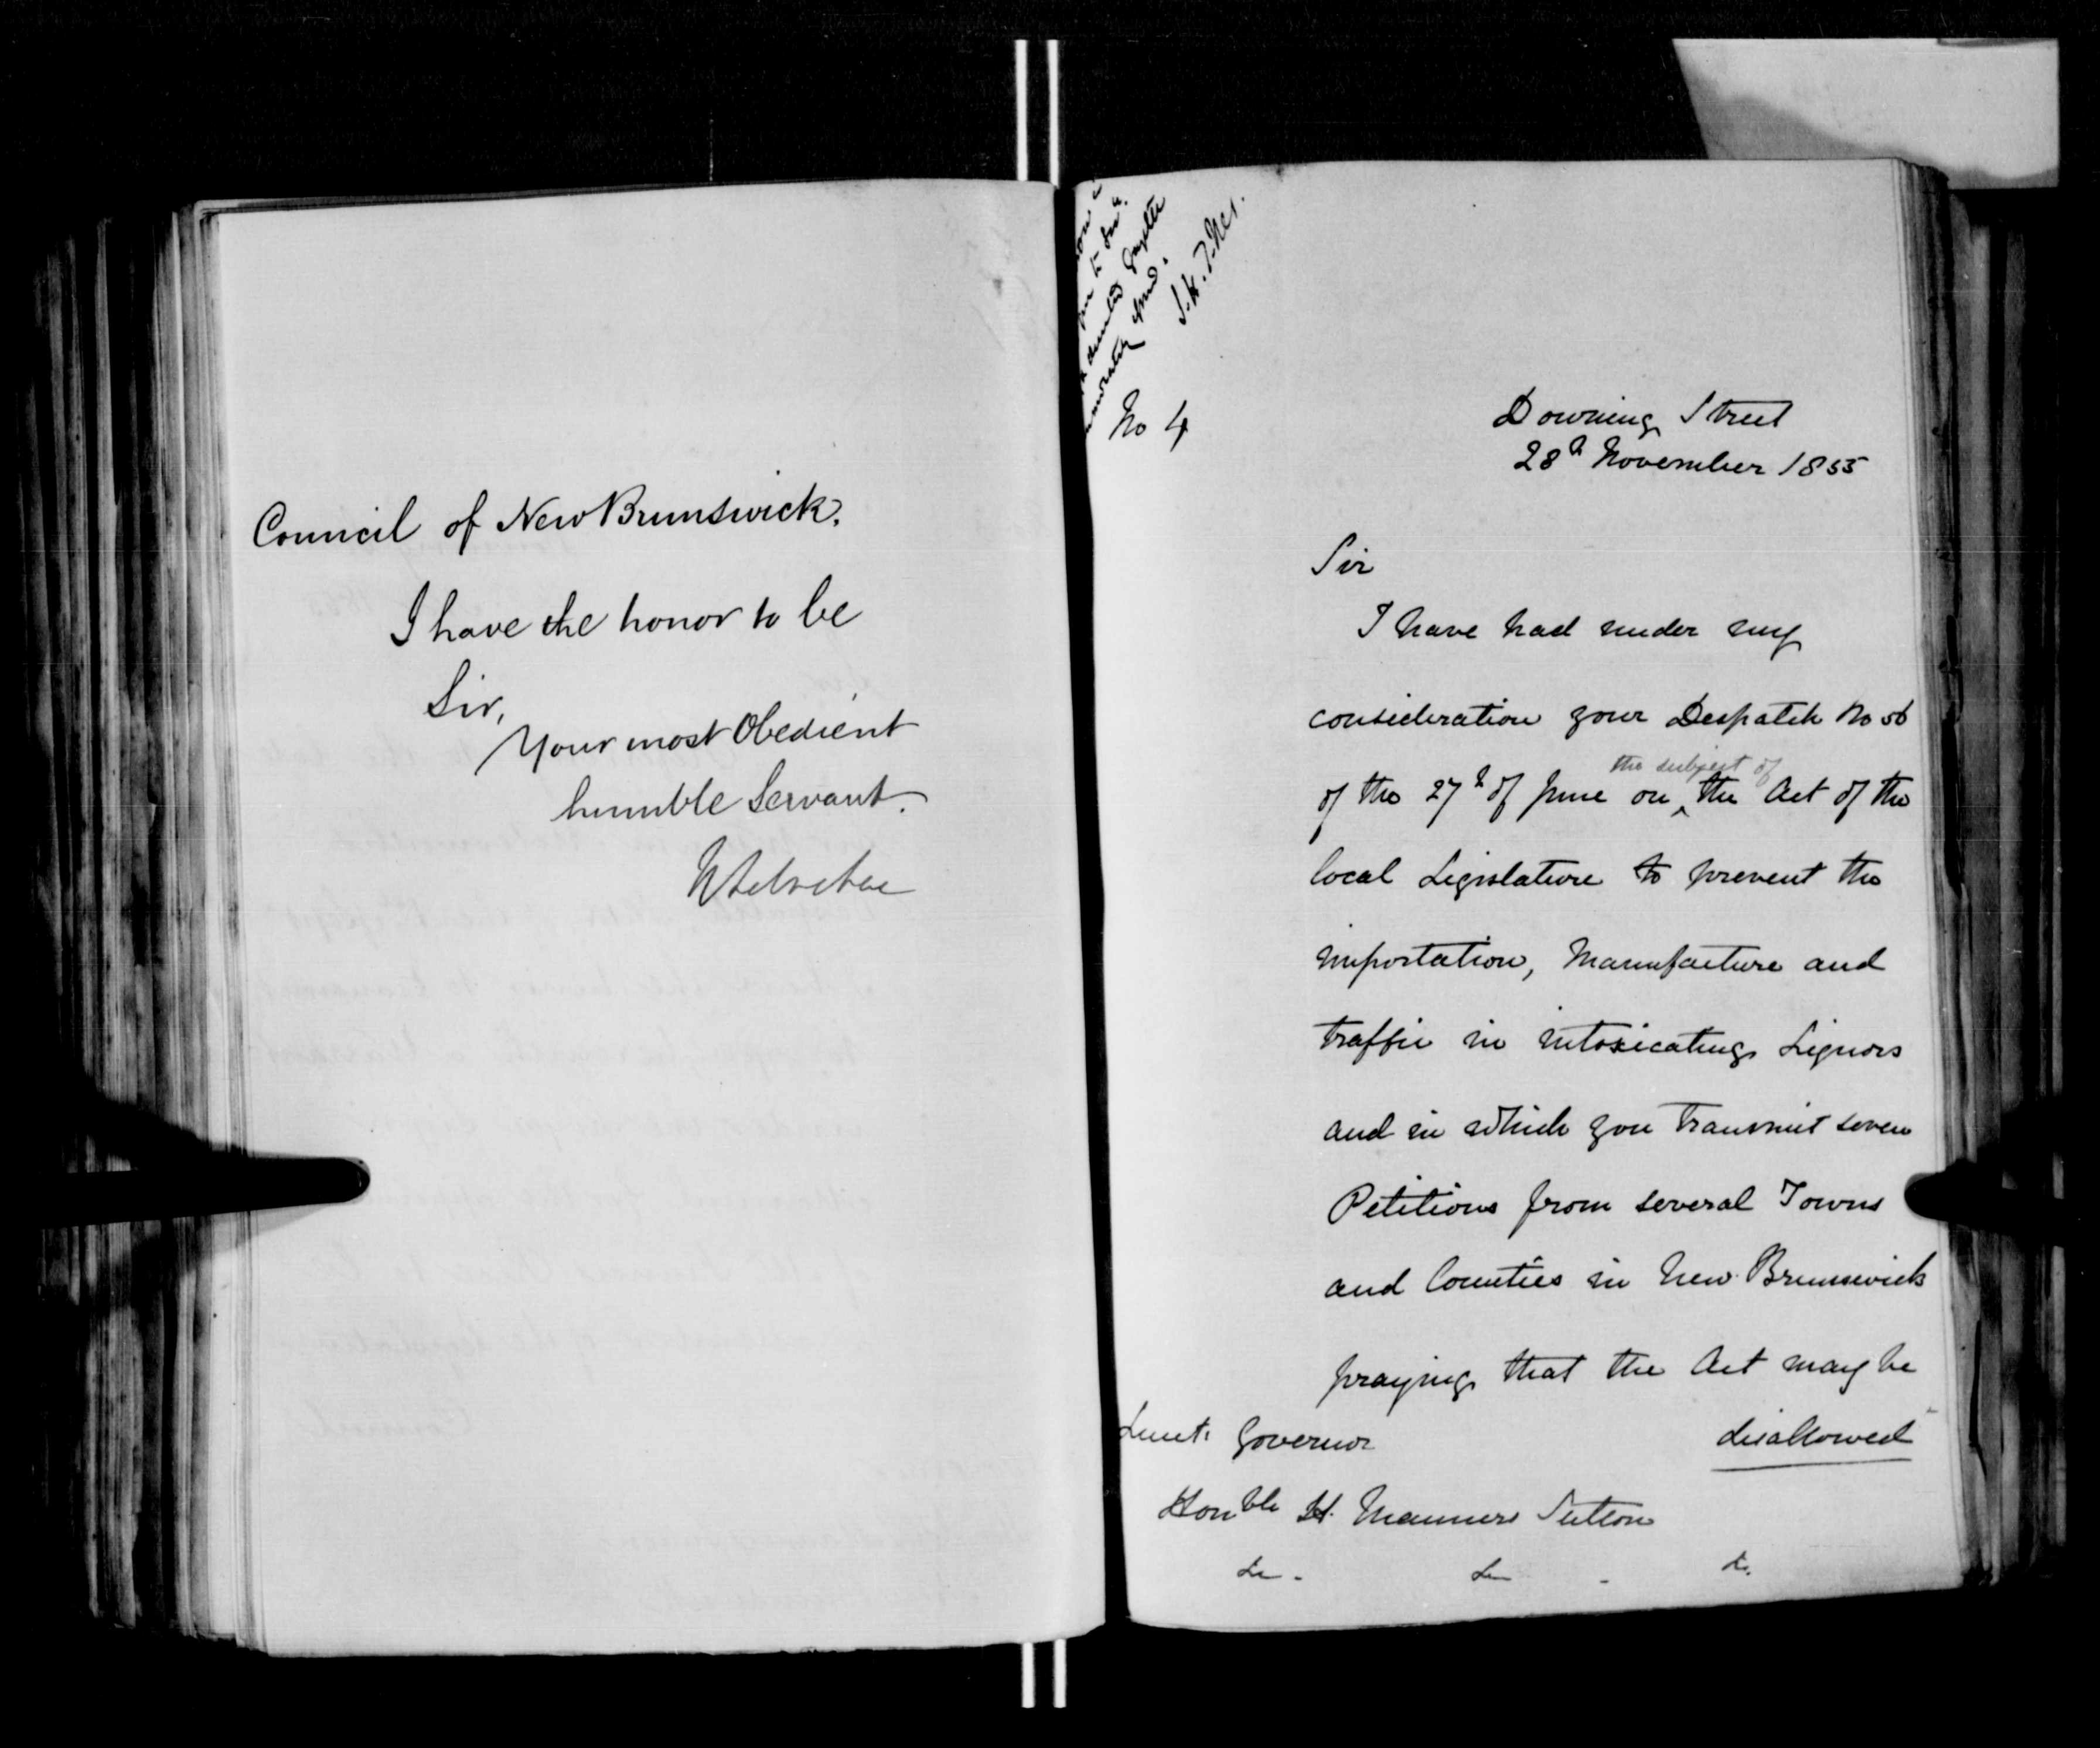 Council of New Brunswick.
I have the honor to be
Sir,
Your most Obedient
humble Servant.
No 4
Downing Street
28h November 1855
Sir
I have had under my
consideration your Despatch No 56
of the 27h of June on the subject of the Act of the
local Legislature to prevent the
importation, Manufacture and
traffic in intoxicating Liquors
and in which you transmit seven
Petitions from several Towns
and Counties in New Brunswick
praying that the Act may be
disallowed
Lieut. Governor
Honble H. Manners Sutton
&c. &c. &c.